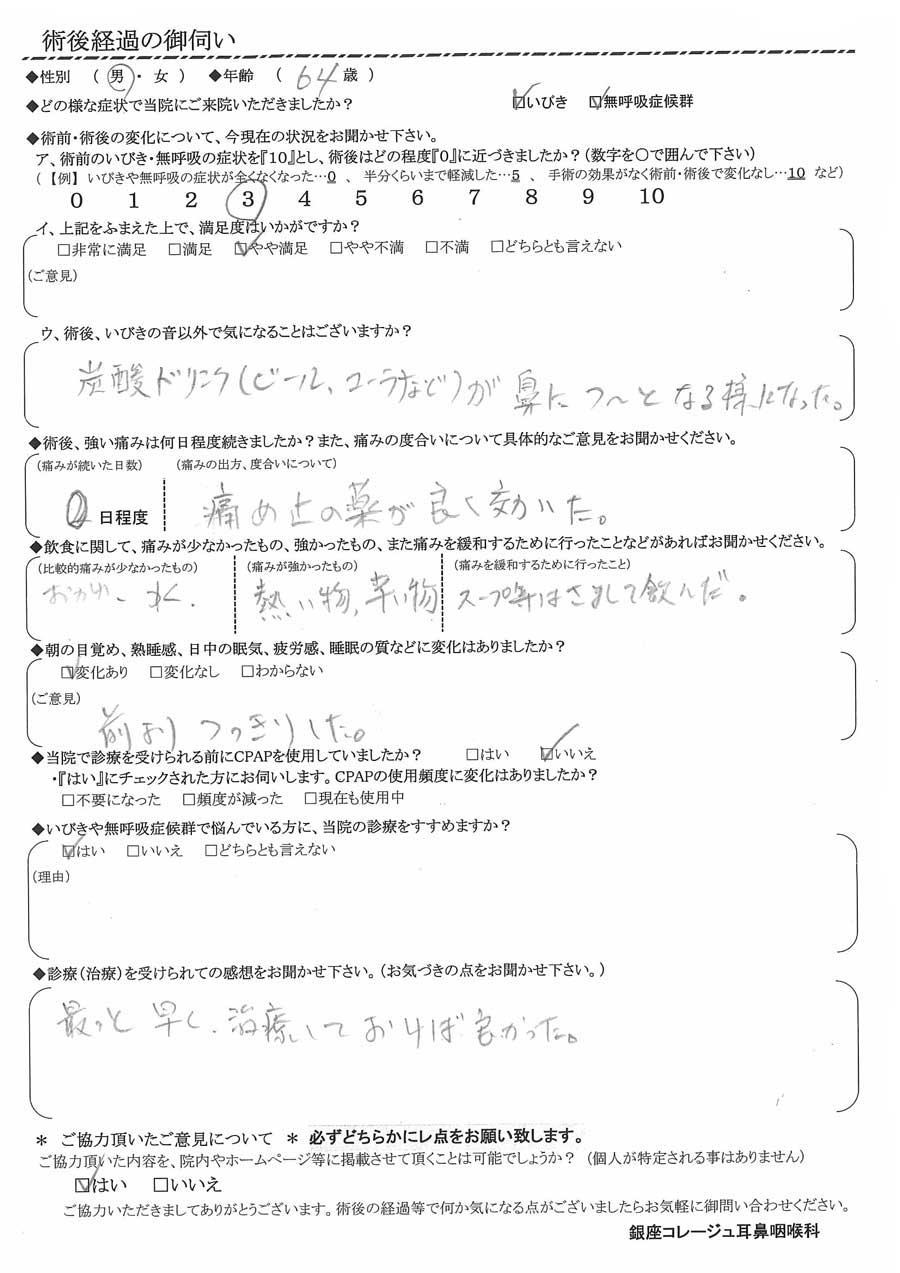 術後経過の御伺い
◆性別 （ 男 ・ 女 ） ◆年齢 （ 64 歳 ）
◆どの様な症状で当院にご来院いただきましたか？ ☑いびき ☑無呼吸症候群
◆術前・術後の変化について、今現在の状況をお聞かせ下さい。
ア、術前のいびき・無呼吸の症状を『10』とし、術後はどの程度『0』に近づきましたか？（数字を〇で囲んで下さい）
（【例】 いびきや無呼吸の症状が全くなくなった…0 、 半分くらいまで軽減した…5 、 手術の効果がなく術前・術後で変化なし…10 など）
0 1 2 3 4 5 6 7 8 9 10
イ、上記をふまえた上で、満足度はいかがですか？
□非常に満足 □満足 ☑やや満足 □やや不満 □不満 □どちらとも言えない
（ご意見）
ウ、術後、いびきの音以外で気になることはございますか？
炭酸ドリンク(ビール、コーラなど)が鼻につ～となる様になった。
◆術後、強い痛みは何日程度続きましたか？また、痛みの度合いについて具体的なご意見をお聞かせください。
（痛みが続いた日数） （痛みの出方、度合いについて）
日程度 痛め止の薬が良く効いた。
◆飲食に関して、痛みが少なかったもの、強かったもの、また痛みを緩和するために行ったことなどがあればお聞かせください。
（比較的痛みが少なかったもの） （痛みが強かったもの） （痛みを緩和するために行ったこと）
おかゆ、水. 熱い物,辛い物 スープ等はさまして飲んだ。
◆朝の目覚め、熟睡感、日中の眠気、疲労感、睡眠の質などに変化はありましたか？
☑変化あり □変化なし □わからない
（ご意見）
前より すっきりした。
◆当院で診療を受けられる前にCPAPを使用していましたか？ □はい ☑いいえ
・『はい』にチェックされた方にお伺いします。CPAPの使用頻度に変化はありましたか？
□不要になった □頻度が減った □現在も使用中
◆いびきや無呼吸症候群で悩んでいる方に、当院の診療をすすめますか？
☑はい □いいえ □どちらとも言えない
（理由）
◆診療（治療）を受けられての感想をお聞かせ下さい。（お気づきの点をお聞かせ下さい。）
最っと 早く、治療しておけば良かった。
＊ ご協力頂いたご意見について ＊ 必ずどちらかにレ点をお願い致します。
ご協力頂いた内容を、院内やホームページ等に掲載させて頂くことは可能でしょうか？ （個人が特定される事はありません）
☑はい □いいえ
ご協力いただきましてありがとうございます。術後の経過等で何か気になる点がございましたらお気軽に御問い合わせください。
銀座コレージュ耳鼻咽喉科